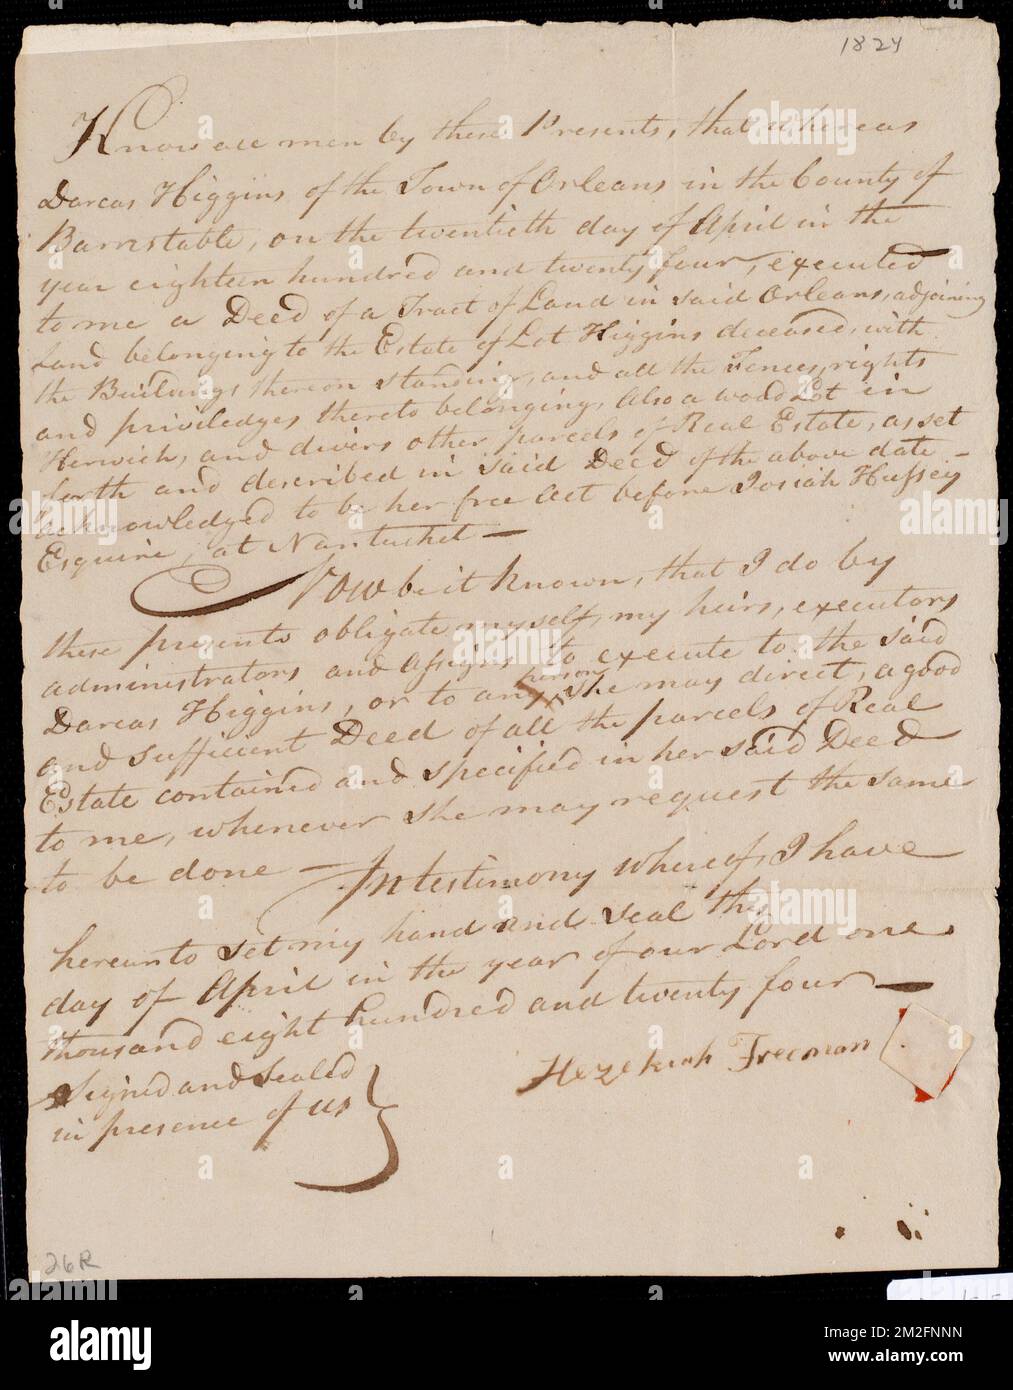 1824
Know all men by these Presents, that whereas
Darcas Higgins of the Town of Orleans in the County of
Barnstable, on the twentieth day of April in the
year eighteen hundred and twenty four, executed
to me a Deed of a Tract of Land in said Orleans, adjoining
Land belonging to the Estate of Lot Higgins deceased, with
the Buildings thereon standing, and all the Fences, rights
and priviledges thereto belonging, Also a wood Lot in
Herwich, and divers other parcels of Real Estate, as set
forth and described in said Deed of the above date –
acknowledged to be her free Act before Josiah Hussey
Esquire, at Nantucket —
Now be it known, that I do by
these presents obligate myself, my heirs, executors
administrators and Assigns to execute to the said
Darcas Higgins, or to any person she may direct, a good
and sufficient Deed of all the parcels of Real
Estate contained and specified in her said Deed
to me, whenever she may request the same
to be done – In testimony whereof, I have
hereunto set my hand and seal this
day of April in the year of our Lord one
thousand eight hundred and twenty four —
Signed and Sealed
in presence of us
Hezekiah Freeman
26R
alamy
Image ID: 2M2FNNN
www.alamy.com